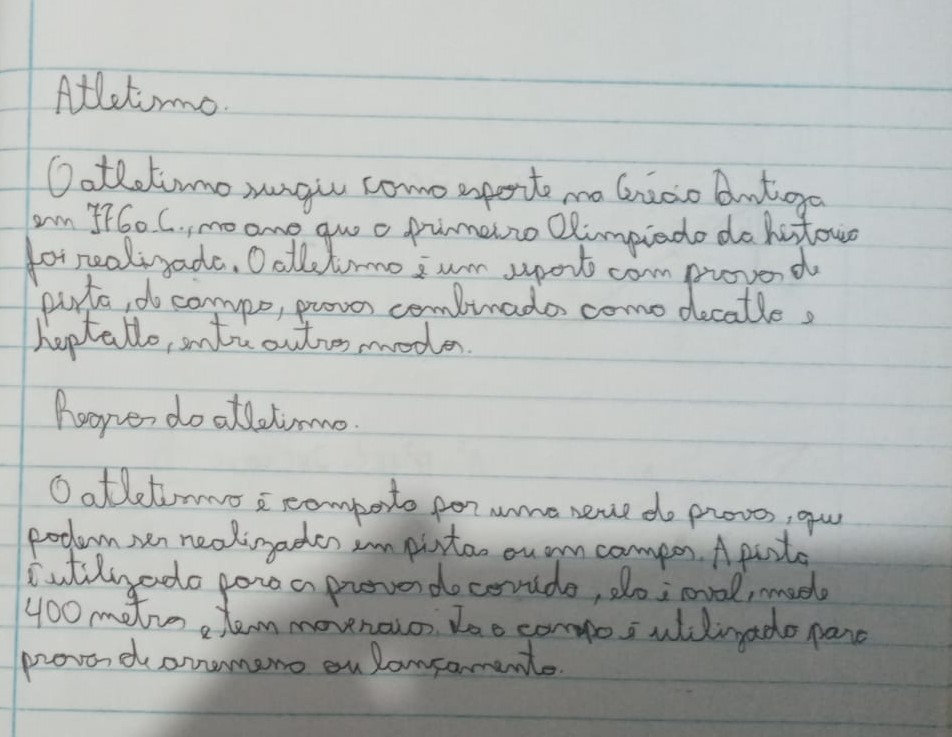 Atletismo.
O atletismo surgiu como esporte na Grécia Antiga
em 776 a.C., no ano que a primeira Olimpíada da historia
foi realizada. O atletismo é um esporte com provas de
pista, de campo, provas combinadas como decatlo e
heptatlo, entre outros modos.
Regras do atletismo.
O atletismo é composto por uma serie de provas, que
podem ser realizadas em pistas ou em campos. A pista
é utilizada para as provas de corrida, ela é oval, mede
400 metros e tem nove raios. Ja o campo é utilizado para
provas de arremesso ou lançamento.